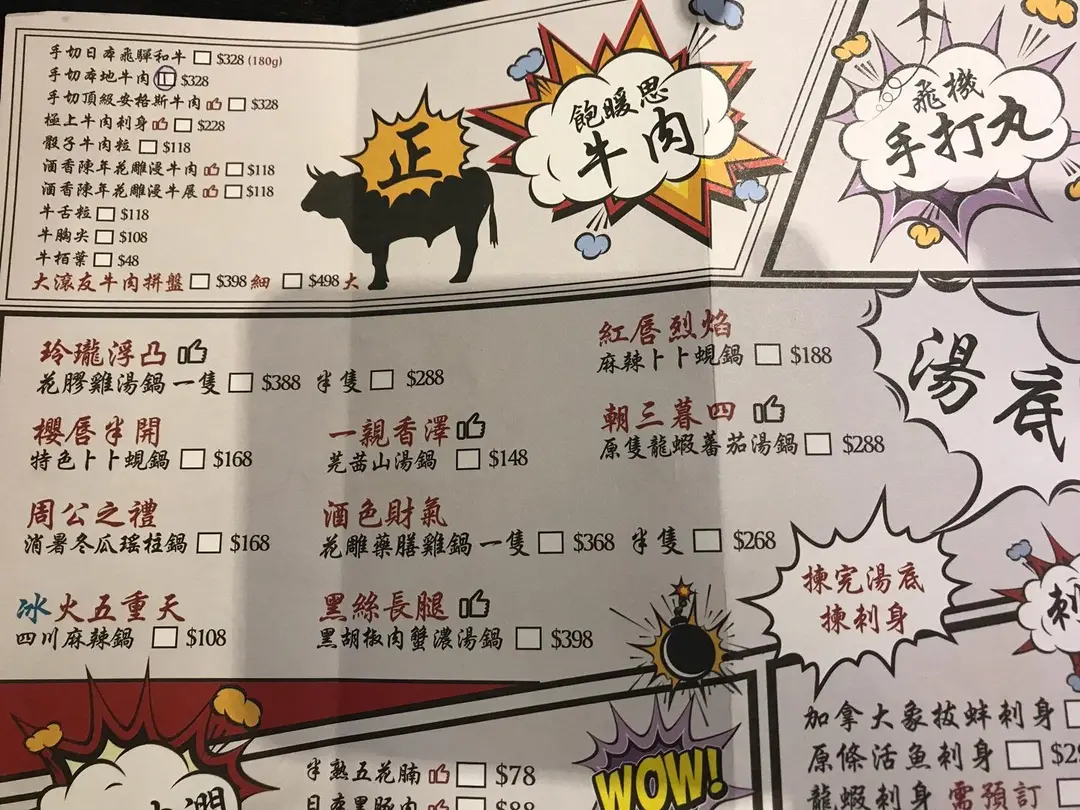 手切日本飛驒和牛 $328 (180g)
手切本地牛肉 $328
手切頂級安格斯牛肉 $328
極上牛肉刺身 $228
骰子牛肉粒 $118
酒香陳年花雕浸牛肉 $118
酒香陳年花雕浸牛展 $118
牛舌粒 $118
牛胸尖 $108
牛栢葉 $48
大滾友牛肉拼盤 $398 細 $498 大
正
飽暖思
牛肉
飛機
手打丸
湯底
玲瓏浮凸
花膠雞湯鍋 一隻 $388 半隻 $288
紅唇烈焰
麻辣卜卜蜆鍋 $188
櫻唇半開
特色卜卜蜆鍋 $168
一親香澤
芫茜山湯鍋 $148
朝三暮四
原隻龍蝦蕃茄湯鍋 $288
周公之禮
消暑冬瓜瑤柱鍋 $168
酒色財氣
花雕藥膳雞鍋 一隻 $368 半隻 $268
冰火五重天
四川麻辣鍋 $108
黑絲長腿
黑胡椒肉蟹濃湯鍋 $398
揀完湯底
揀刺身
刺
加拿大象拔蚌刺身
原條活魚刺身
龍蝦刺身 需預訂
半熟五花腩 $78
日本黑豚肉 $88
WOW!